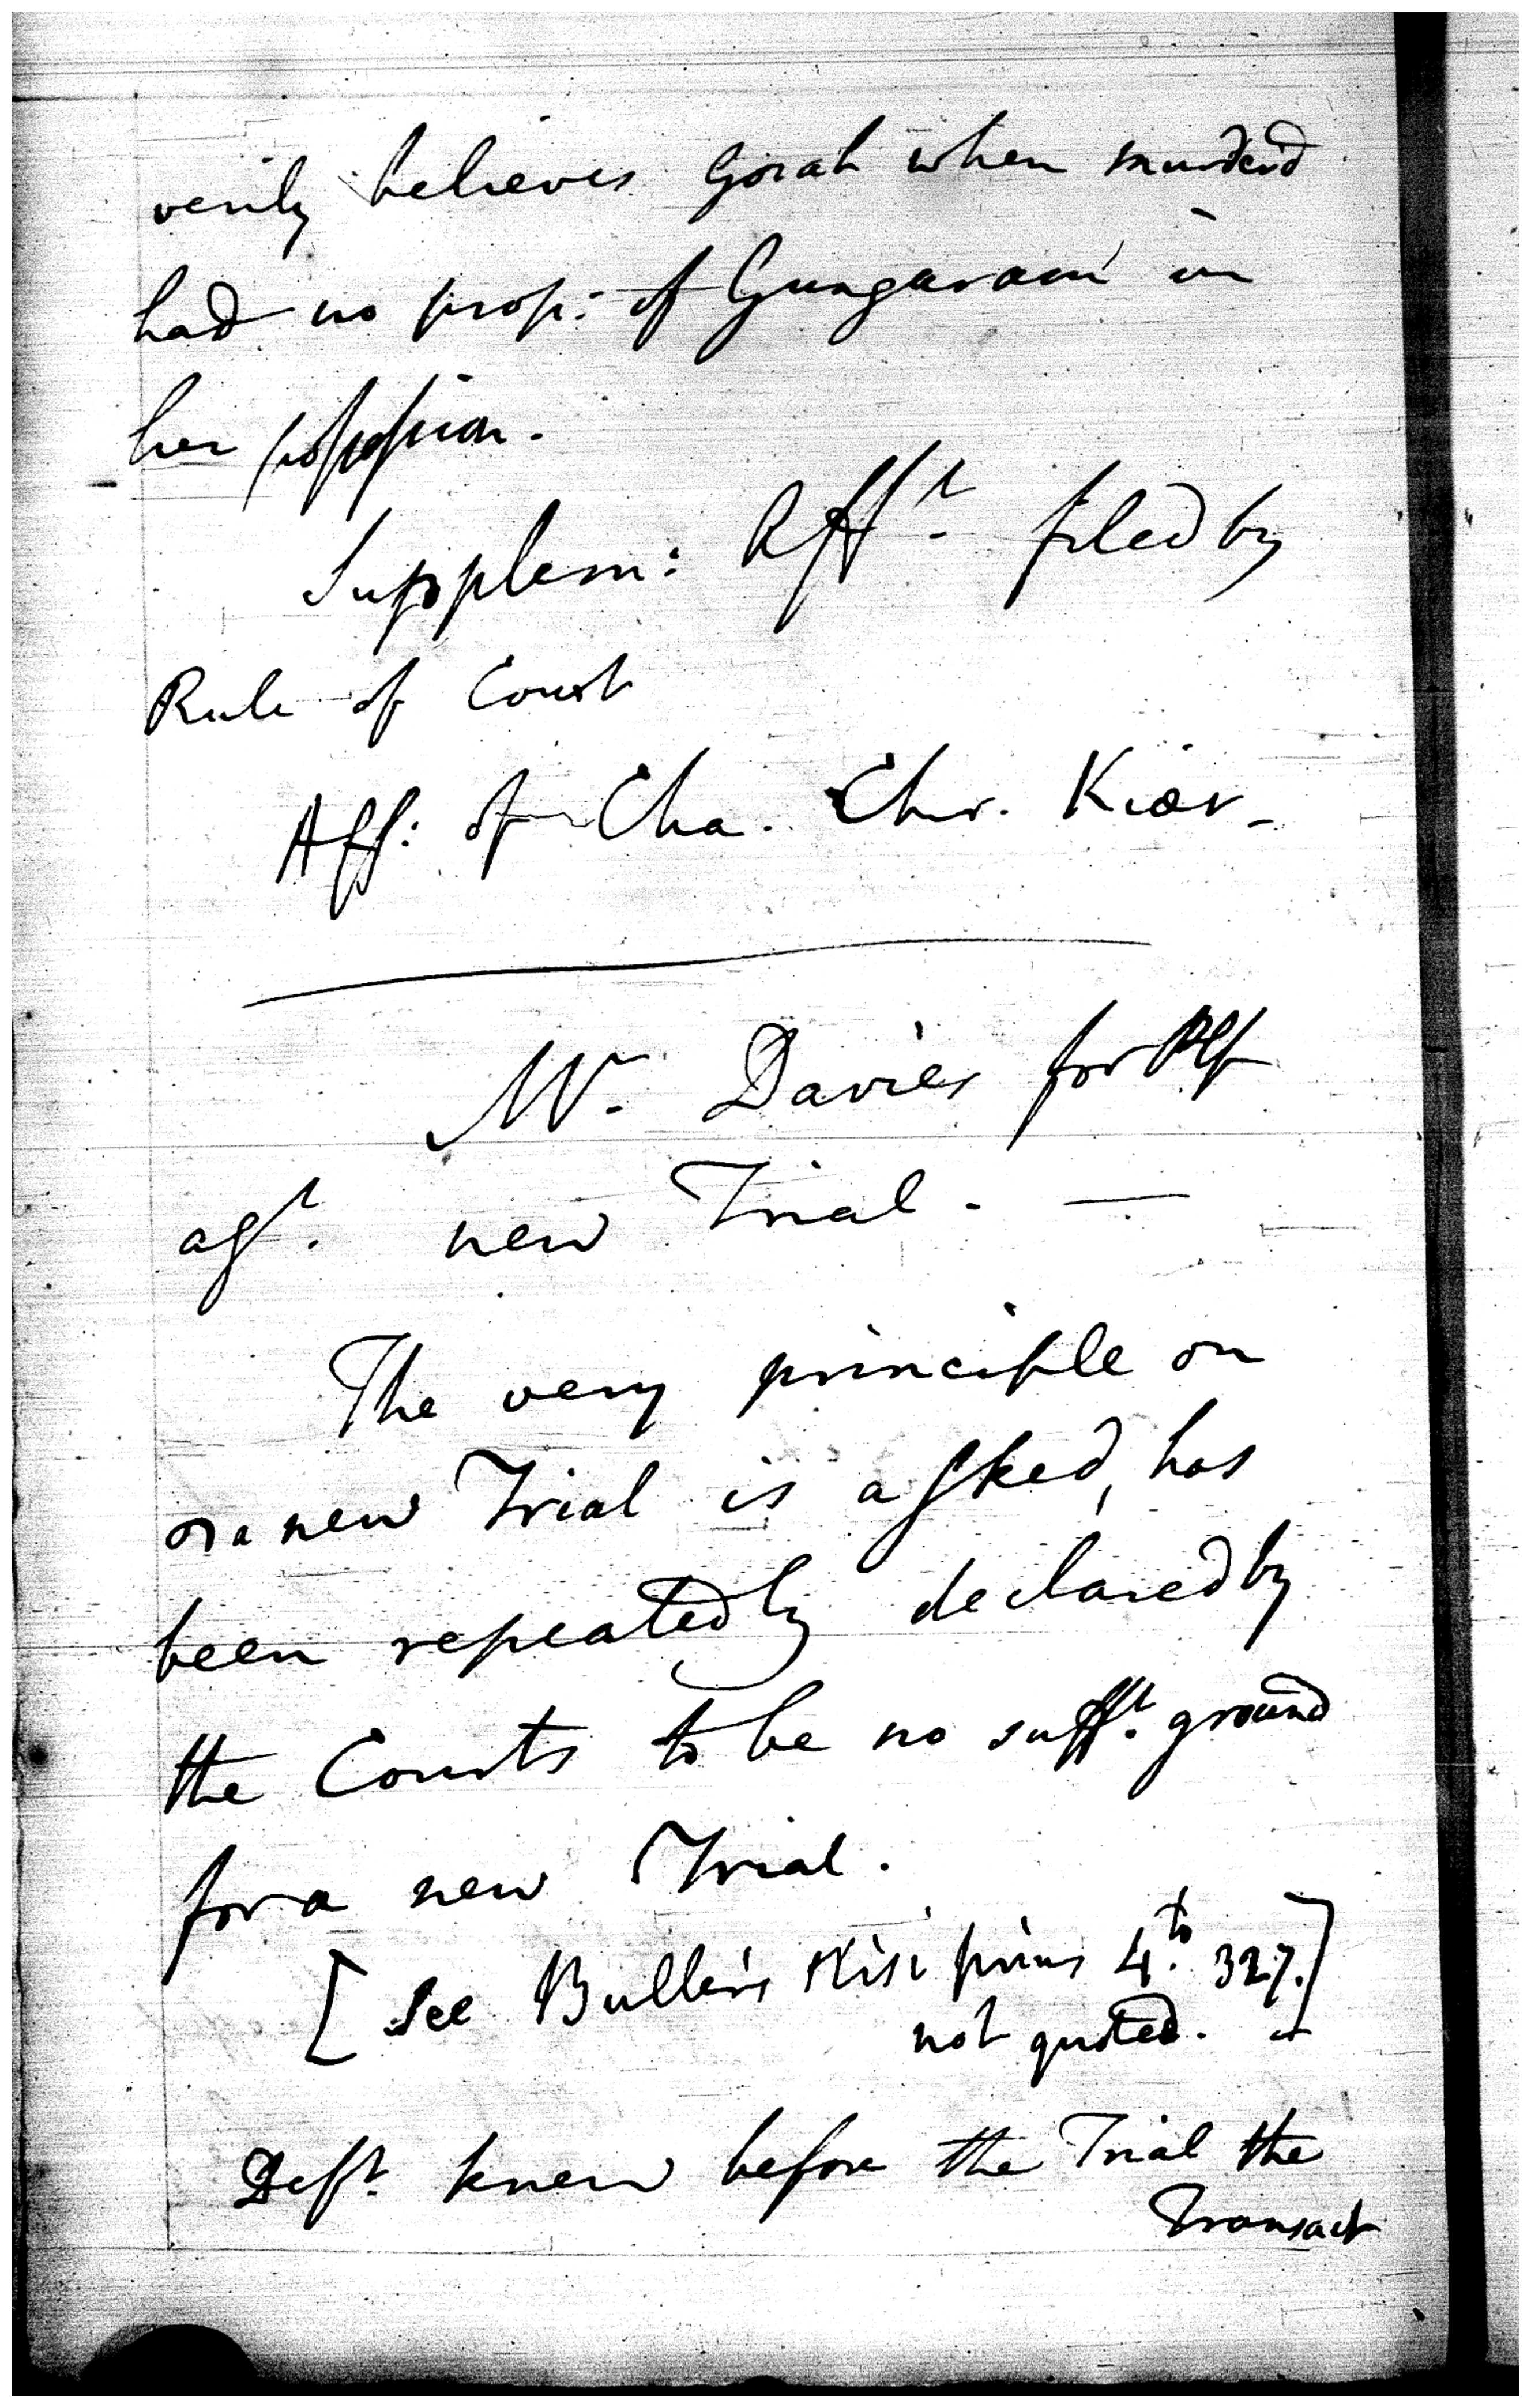 verily believes Gorah when murderd
had no prop: of Gungaram in
her possession.
Supplem: Afft. filed by
Rule of Court
Aff: of Cha. Chr. Kiær
Mr. Davies for Plf
agt. new Trial. —
The very principle on
a new Trial is asked, has
been repeatedly declared by
the Courts to be no sufft. ground
for a new Trial.
[See Buller's Nisi prius 4.to 327.]
not quoted. —
Deft. knew before the Trial the
Transact